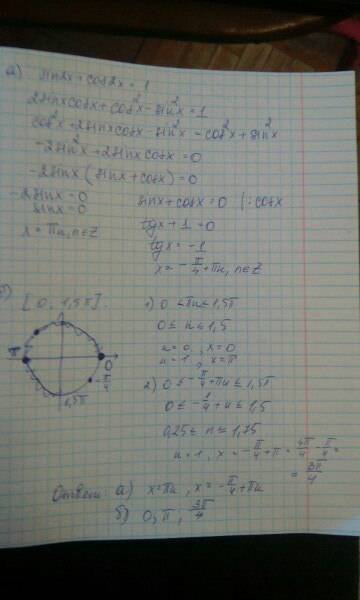 а) sin2x+cos2x=1
2sinxcosx+cos²x-sin²x=1
cos²x+2sinxcosx-sin²x-cos²x+sin²x
-2sin²x+2sinxcosx=0
-2sinx(sinx+cosx)=0
-2sinx=0 sinx+cosx=0 |:cosx
sinx=0 tgx+1=0
x=πn, n∈Z tgx=-1
x=-π/4+πn, n∈Z
б) [0, 1,5π]. 1) 0≤πn≤1,5π
0≤n≤1,5
n=0, x=0
n=1, x=π
π 0 -π/4 1,5π
2) 0≤-π/4+πn≤1,5π
0≤-1/4+n≤1,5
0,25≤n≤1,75
n=1, x=-π/4+π=4π/4-π/4=
=3π/4
Ответ: а) x=πn, x=-π/4+πn
б) 0, π, 3π/4